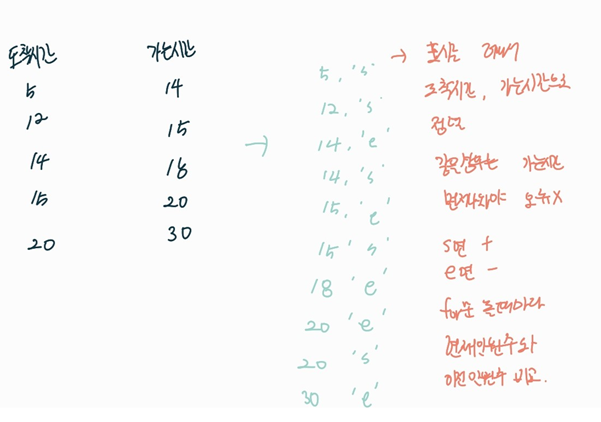 도착시간 가는시간
5 14
12 15
14 18
15 20
20 30
→
5, 's'
12, 's'
14, 'e'
14, 's'
15, 'e'
15 's'
18 'e'
20 'e'
20 's'
30 'e'
→ 표시는 해서
도착시간, 가는시간으로
정렬
같은경우는 가는시간
먼저나와야 오류X
s면 +
e면 -
for문 돌때마다
현재인원수와
이전인원수 비교.